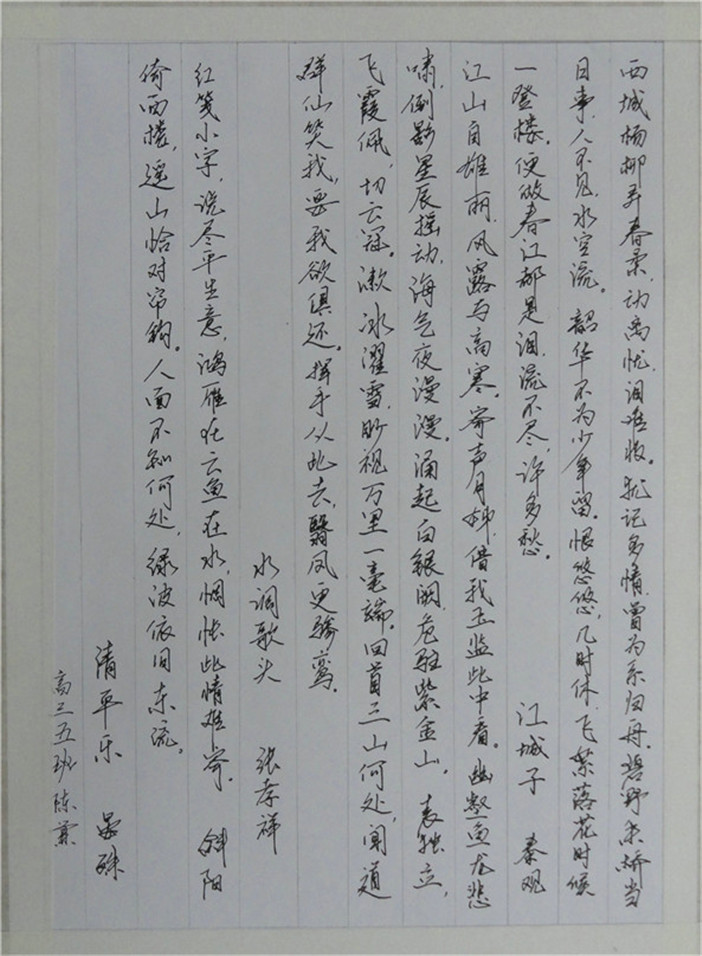 西城杨柳弄春柔，动离忧，泪难收。犹记多情，曾为系归舟。碧野朱桥当
日事，人不见，水空流。 韶华不为少年留，恨悠悠，几时休，飞絮落花时候
一登楼。便做春江都是泪，流不尽，许多愁。
江城子 秦观
江山自雄丽，风露与高寒。寄声月姊，借我玉监此中看。幽壑鱼龙悲
啸，倒影星辰摇动，海气夜漫漫。涌起白银阙，危驻紫金山。 表独立，
飞霞佩，切云冠。漱冰濯雪，眇视万里一毫端。回首三山何处，闻道
群仙笑我，要我欲俱还。挥手从此去，翳凤更骖鸾。
水调歌头 张孝祥
红笺小字，说尽平生意，鸿雁在云鱼在水，惆怅此情难寄。 斜阳
倚西楼，遥山恰对帘钩。人面不知何处，绿波依旧东流。
清平乐 晏殊
高三五班 陈